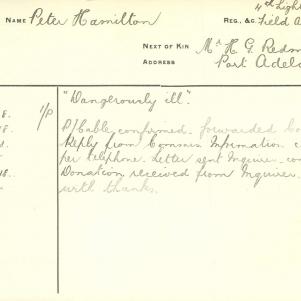 NAME Peter Hamilton
4th Light
REG., &C. Field A
NEXT OF KIN Mr H G Redm
ADDRESS Port Adela
8. 1/P "Dangerously ill".
18. P/Cable confirmed. Forwarded Co
Reply from Commrs Information c
per telephone. Letter sent Inquirer. con
18.. Donation received from Inquirer.
with thanks.